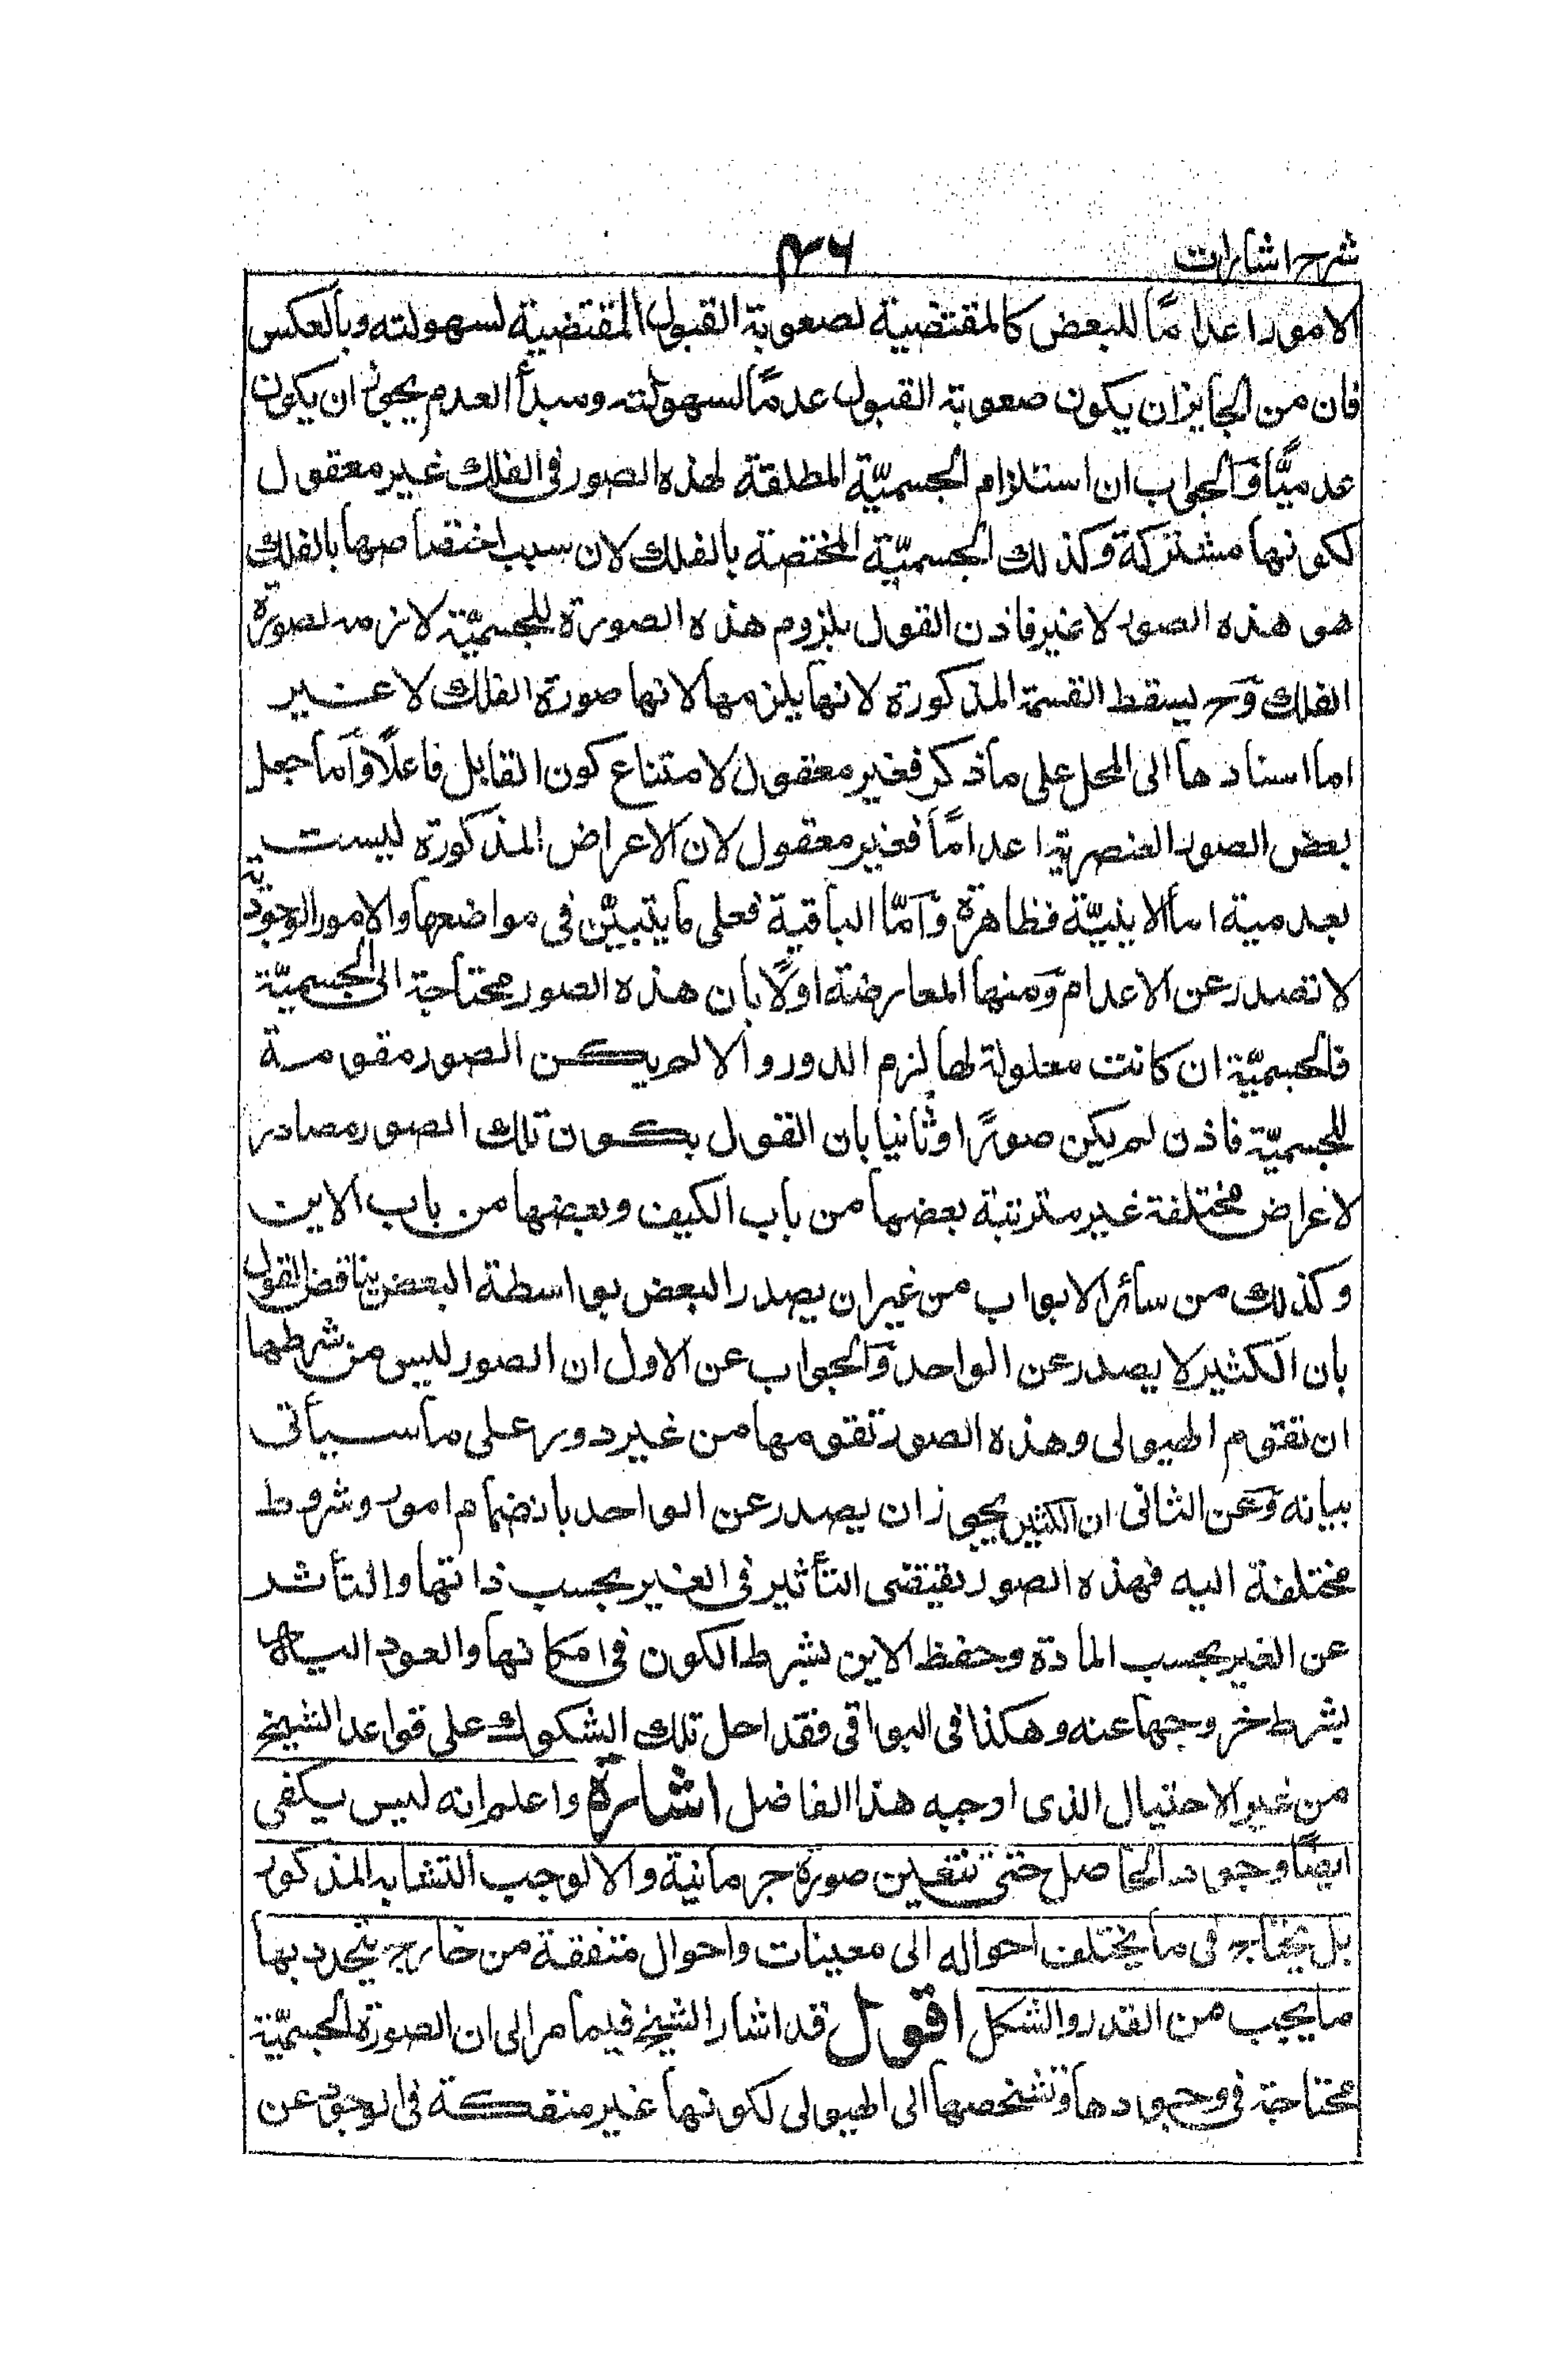 شرح اشارات
٤٦
الامور اعداما للبعض كالمقتضية لصعوبة القبول المقتضية لسهولته وبالعكس
فان من الجايز ان يكون صعوبة القبول عدمًا لسهولته ومبدأ العدم يجوز ان يكون
عدميًّا وَالجواب ان استلزام الجسميّة المطلقة لهذه الصور فى الفلك غير معقول
لكونها مشتركة وكذلك الجسميّة المختصة بالفلك لان سبب اختصاصها بالفلك
هو هذه الصور لا غير فاذن القول بلزوم هذه الصورة للجسميّة لازمه لصورة
الفلك وَح يسقط القسمة المذكورة لانها يلزمها لانها صورة الفلك لا غير
اما اسنادها الى المحل على ما ذكر فغير معقول لامتناع كون القابل فاعلًا وَاما جعل
بعض الصور العنصرية اعدامًا فغير معقول لان الاعراض المذكورة ليست
بعدمية اما الاينيّة فظاهرة وَامّا الباقية فعلى ما يتبيّن فى مواضعها والامور الوجودية
لا تصدر عن الاعدام وَمنها المعارضة اولًا بان هذه الصور محتاجة الى الجسميّة
فالجسميّة ان كانت معلولة لها لزم الدور والا لم يكن الصور مقومة
للجسميّة فاذن لم يكن صورًا وثانيا بان القول بكون تلك الصور مصادر
لاعراض مختلفة غير مترتبة بعضها من باب الكيف وبعضها من باب الاين
وكذلك من سائر الابواب من غير ان يصدر البعض بواسطة البعض يناقض القول
بان الكثير لا يصدر عن الواحد وَالجواب عن الاول ان الصور ليس من شرطها
ان تقوم الهيولى وهذه الصور تقومها من غير دور على ما سيأتى
بيانه وَعن الثانى ان الكثير يجوز ان يصدر عن الواحد بانضمام امور وشروط
مختلفة اليه فهذه الصور تقتضى التأثير فى الغير بحسب ذاتها والتأثر
عن الغير بحسب المادة وحفظ الاين بشرط الكون فى امكانها والعود اليها
بشرط خروجها عنه وهكذا فى البواقى فقد احل تلك الشكوك على قواعد الشيخ
من غير الاحتيال الذى اوجبه هذا الفاضل اشارة واعلم انه ليس يكفى
ايضًا وجود الحاصل حتى تتعين صورة جرمانية والا لوجب التشابه المذكور
بل يحتاج فى ما يختلف احواله الى معينات واحوال متفقة من خارج يتحدد بها
ما يجب من القدر والشكل اقول قد اشار الشيخ فيما مر الى ان الصورة الجسميّة
محتاجة فى وجودها وتشخصها الى الهيولى لكونها غير منفكة فى الوجود عن